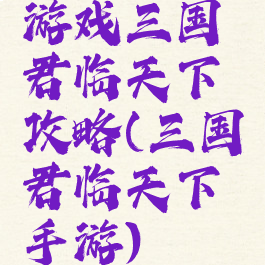 游戏三国
君临天下
攻略(三国
君临天下
手游)